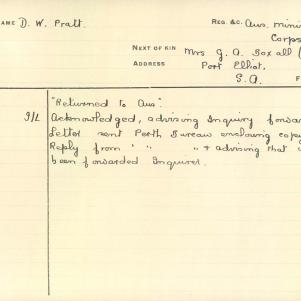 NAME D. W. Pratt.
REG. &C. Aus. Mini
Corps
NEXT OF KIN Mrs G. A. Boxall (
ADDRESS Port Elliot.
S.A.
"Returned to Aus".
Acknowledged, advising Inquiry forwar
Letter sent Perth Bureau enclosing copy
Reply from " " " + advising that
been forwarded Inquirer.